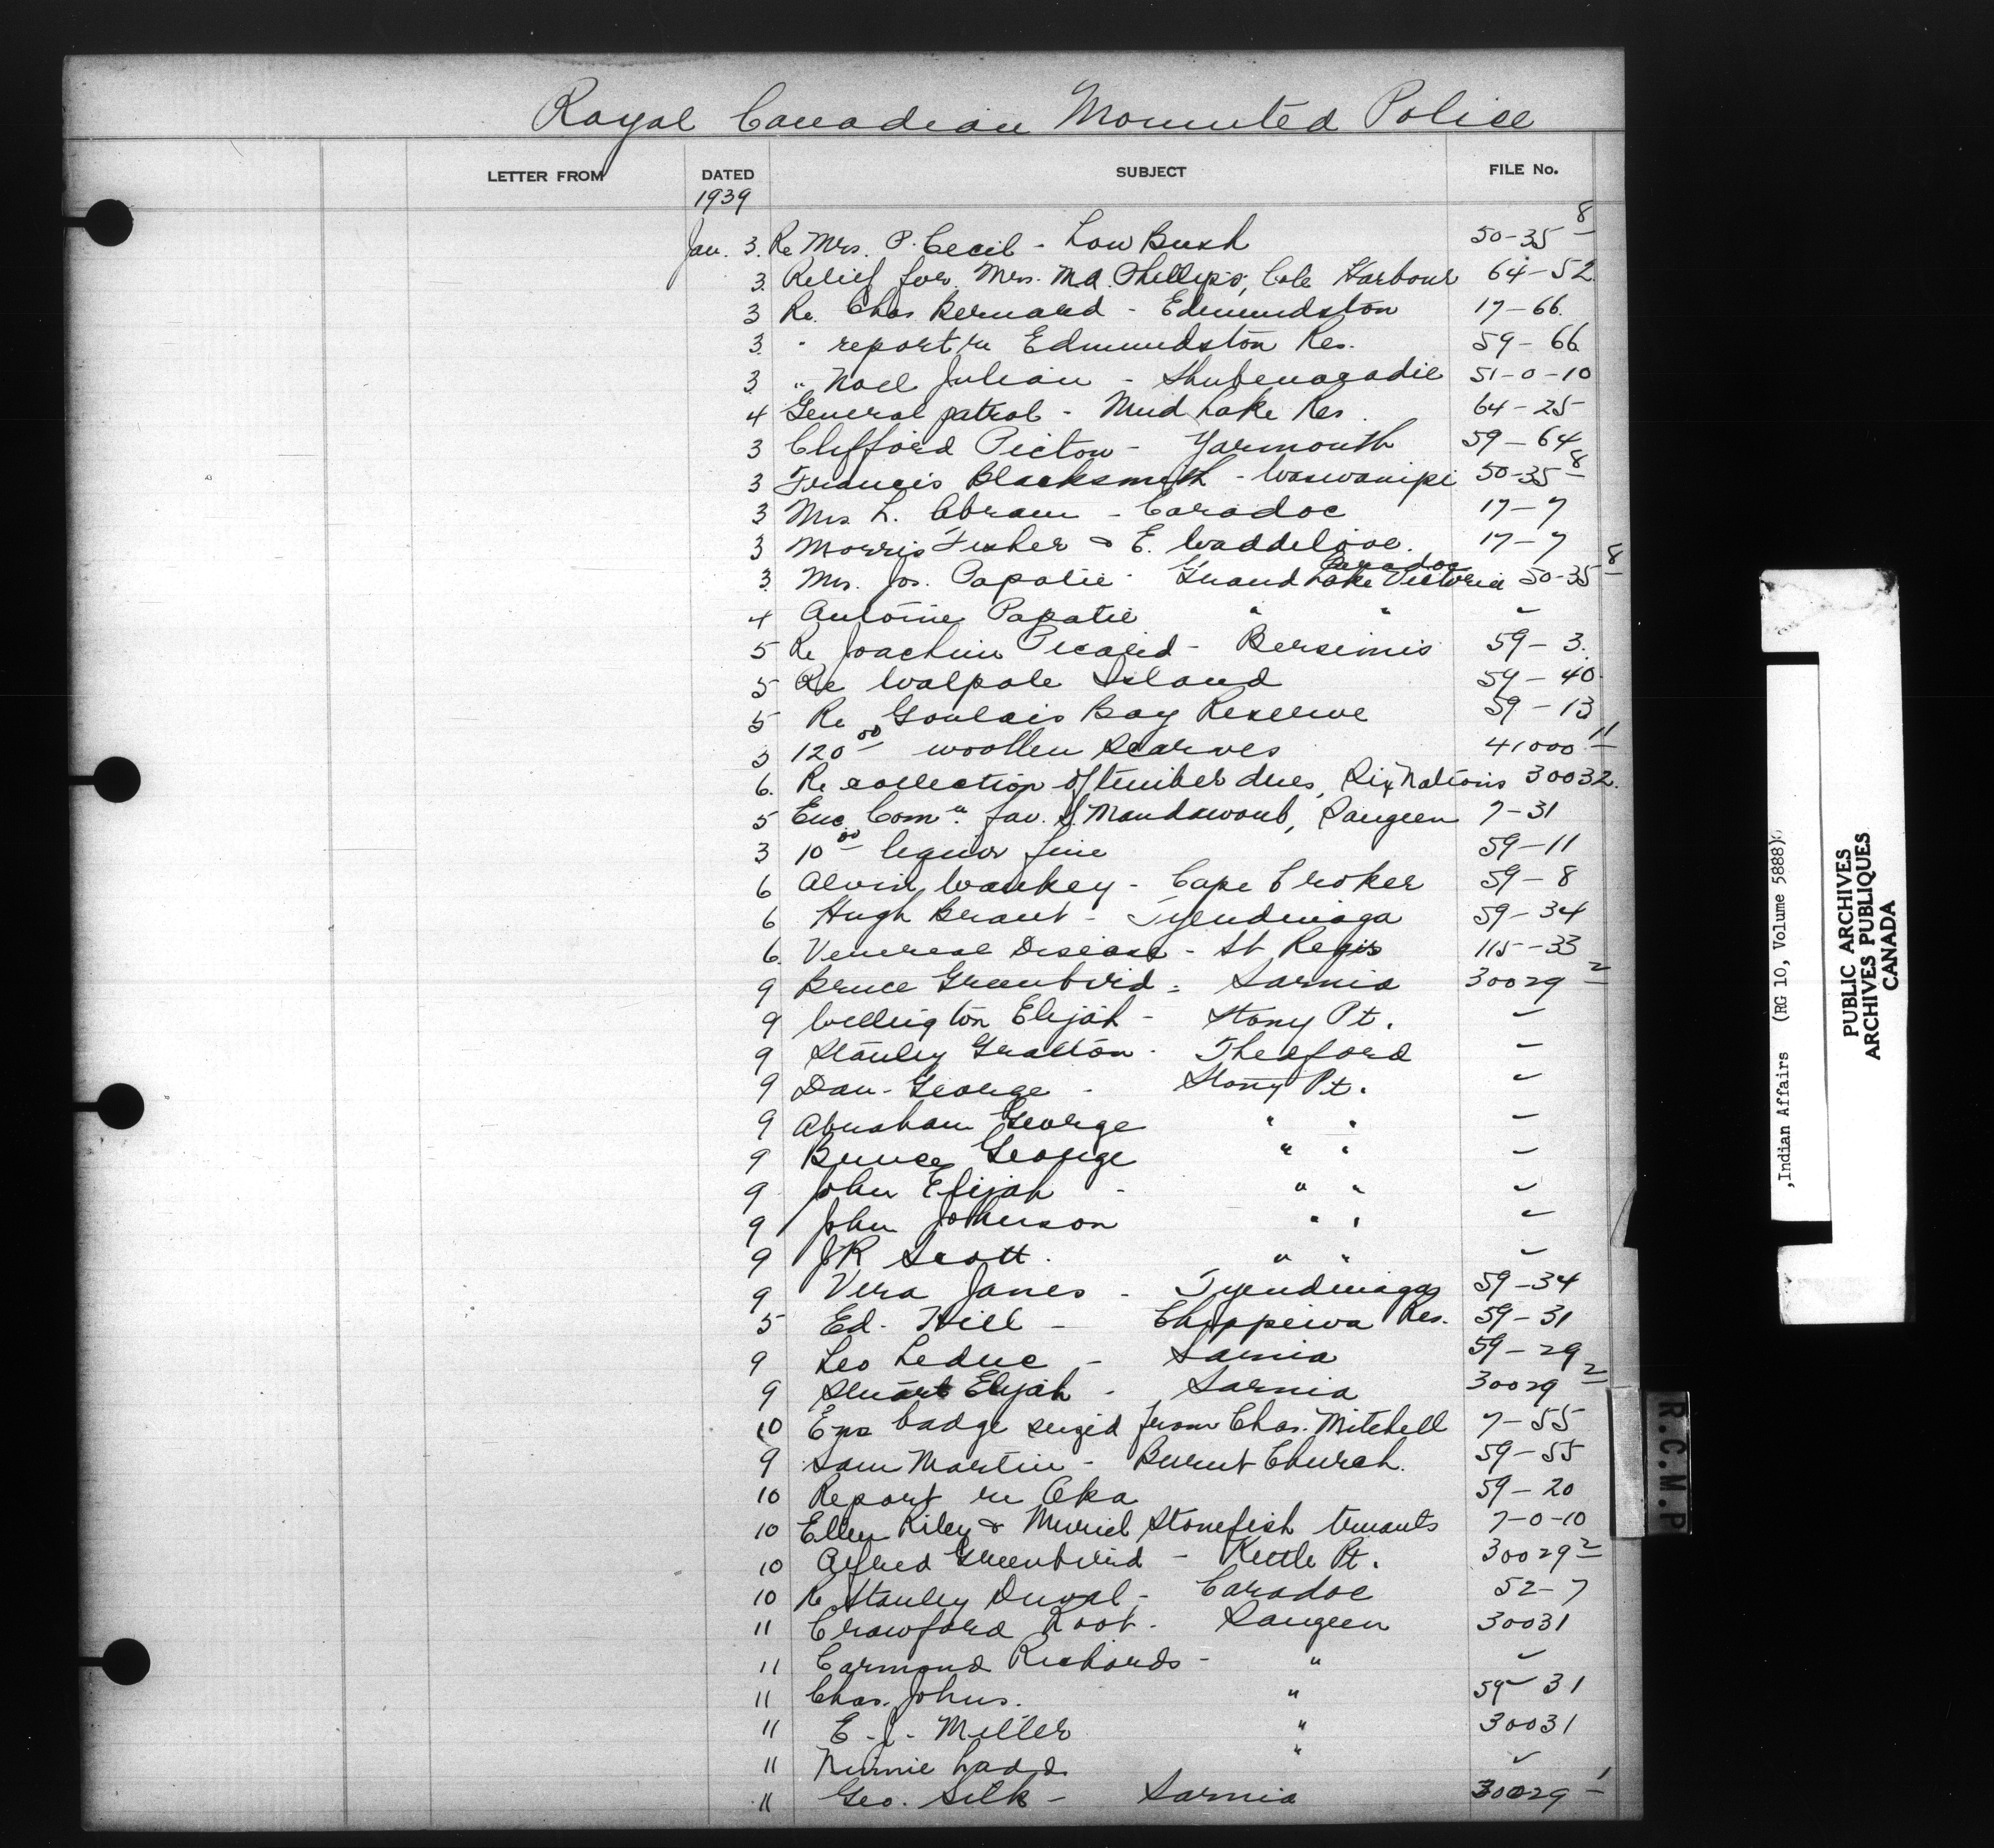 Royal Canadian Mounted Police
LETTER FROM DATED SUBJECT FILE No.
1939
Jan. 3. Re Mrs. P. Cecil - Low Bush 50-35 8
3. Relief for Mrs. M.A. Phillips, Cole Harbour 64-52
3 Re. Chas. Bernard - Edmundston 17-66.
3. " report re Edmundston Res. 59-66
3 " Noel Julian - Shubenacadie 51-0-10
4 General patrol - Mud Lake Res. 64-25
3 Clifford Picton - Yarmouth 59-64
3 Francis Blacksmith - Waswanipi 50-35 8
3 Mrs L. Abram - Caradoc 17-7
3 Morris Fisher & E. Waddelove. Caradoc 17-7
3. Mrs. Jos. Papatie - Grand Lake Victoria 50-35 8
4 Antoine Papatie " " ✓
5 Re Joachim Picard - Bersimis 59-3.
5 Re Walpole Island 59-40.
5 Re Goulais Bay Reserve 59-13
3 120 00 woollen scarves 41000 11
6. Re collection of timber dues, Six Nations 30032.
5 Enc. Comn. fav. Mandawoub, Saugeen 7-31
3 10 00 liquor fine 59-11
6 Alvin Waukey - Cape Croker 59-8
6 Hugh Brant - Tyendinaga 59-34
6. Venereal Disease - St Regis 115-33
9 Bruce Greenbird - Sarnia 30029 2
9 Wellington Elijah - Stony Pt. ✓
9 Stanley Gratton - Thedford ✓
9 Dan George - Stony Pt. ✓
9 Abraham George " " ✓
9 Bruce George " " ✓
9 John Elijah - " " ✓
9 John Johnson " " ✓
9 JR Scott. " " ✓
9 Vera Janes - Tyendinaga 59-34
5 Ed. Hill - Chippewa Res. 59-31
9 Leo Leduc - Sarnia 59-29
9 Stuart Elijah - Sarnia 30029 2
10 badge seized from Chas. Mitchell 7-55
9 Sam Martin - Burnt Church. 59-55
10 Report re Oka 59-20
10 Ellen Riley & Muriel Stonefish truants 7-0-10
10 Alfred Greenbird - Kettle Pt. 30029 2
10 Re Stanley Duval - Caradoc 52-7
11 Crawford Root - Saugeen 30031
11 Carmond Richards - " ✓
11 Chas. Johns. " 59-31
11 E. J. Miller " 30031
11 Ladd " ✓
11 Geo. Silk - Sarnia 30029 1
R.C.M.P
,Indian Affairs (RG 10, Volume 5888)
PUBLIC ARCHIVES
ARCHIVES PUBLIQUES
CANADA